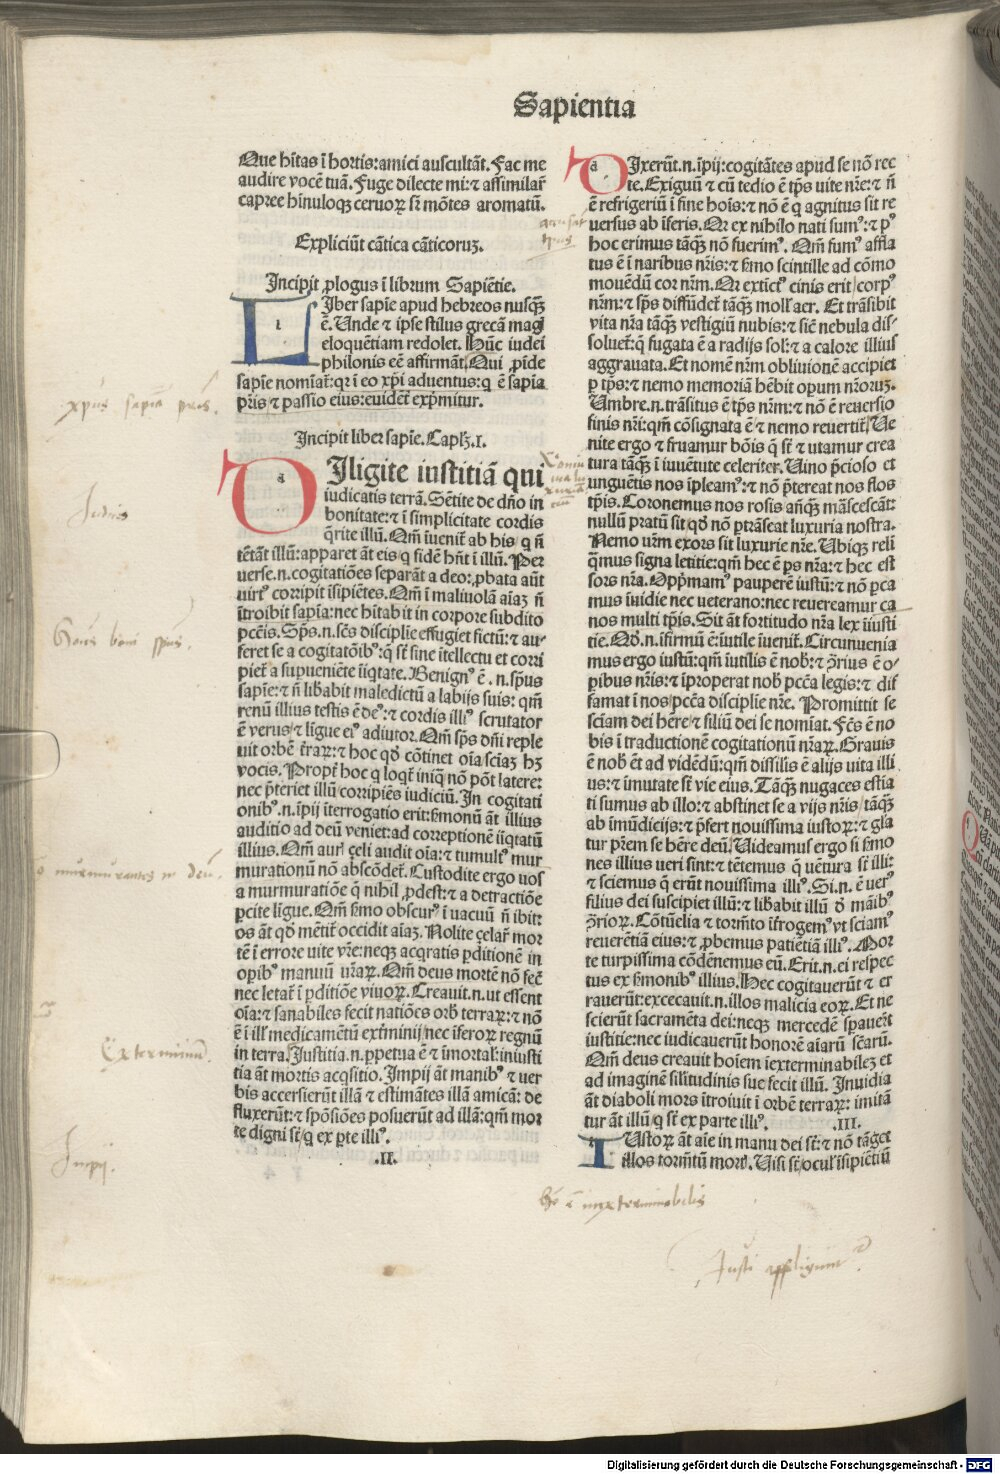 Sapientia
Que hītas ī hortis: amici auscultāt. Fac me
audire vocē tuā. Fuge dilecte mi: ⁊ assimilar̄
capree hīnuloqꝫ ceruoꝝ sr̄ mōtes aromatū.
Expliciūt cātica cāticoruꝫ.
Incipit ꝓlogus ī librum Sapiētie.
LIber sapīe apud hebreos nusqꝫ
ē. Unde ⁊ ipse stilus grecā magꝭ
eloquētiam redolet. Hūc iudei
philonis eē affirmāt. Qui ꝓīde
sapīe nomīat̄: qꝛ ī eo xp̄i aduentus: q ē sapīa
pr̄is ⁊ passio eius: euidēt exp̄mitur.
Incipit liber sapīe. Caplꝫ. I.
DIligite iustitiā qui
iudicatis terrā. Sētite de dn̄o in
bonitate: ⁊ ī simplicitate cordis
q̄rite illū. Qm̄ īuenit̄ ab his q n̄
tētāt illū: apparet āt eis q fidē hn̄t ī illū. Per
uerse .n. cogitatiōes separāt a deo: ꝓbata aūt
uirtꝰ corripit īsipiētes. Qm̄ ī maliuolā aīaꝫ n̄
ītroibit sapīa: nec hītabit in corpore subdito
pctīs. Sp̄s .n. scs̄ discipline effugiet fictū: ⁊ au-
feret se a cogitatōibꝰ: q̄ sr̄ sine ītellectu et corri
piet̄ a supueniēte iīqtate. Benignꝰ ē .n. sp̄us
sapīe: ⁊ n̄ libabit maledictū a labijs suis: qm̄
renū illius testis ē deꝰ: ⁊ cordis illiꝰ scrutator
ē verus ⁊ līgue eiꝰ adiutor. Qm̄ sp̄s dn̄i reple
uit orbē tr̄aꝝ: ⁊ hoc qd̄ cōtinet oīa scīaꝫ hꝫ
vocis. Propt̄ hoc q loqt̄ iniq̄ nō pōt latere:
nec p̄teriet illū corripiēs iudiciū. In cogitati
onibꝰ .n. īpij īterrogatio erit: s̄monū āt illius
auditio ad deū veniet: ad correptionē iīqtatū
illius. Qm̄ aurꝭ çeli audit oīa: ⁊ tumultꝰ mur
murationū nō abscōdet̄. Custodite ergo uos
a murmuratiōe q̄ nihil ꝓdest: ⁊ a detractiōe
ꝑcite līgue. Qm̄ s̄mo obscurꝰ ī uacuū n̄ ibit:
os āt qd̄ mētit̄ occidit aīaꝫ. Nolite çelar̄ mor
tē ī errore vite vr̄e: neqꝫ acqratis ꝑditionē in
opibꝰ manuū ur̄aꝝ. Qm̄ deus mortē nō fec̄
nec letat̄ ī ꝑditiōe viuoꝝ. Creauit .n. ut essent
oīa: ⁊ sanabiles fecit natiōes orbꝭ terraꝝ: ⁊ nō
ē ī illꝭ medicamētū ext̄minij nec īferoꝝ regnū
in terra. Justitia .n. ꝑpetua ē ⁊ īmortalꝭ: iniusti
tia āt mortis acqsitio. Impij āt manibꝰ ⁊ uer
bis accersierūt illā ⁊ estimātes illā amicā: de
fluxerūt: ⁊ spōsiōes posuerūt ad illā: qm̄ mor
te digni sr̄ q ex pte illiꝰ.
.II.
DIxerūt .n. īpij: cogitātes apud se nō rec
te. Exiguū ⁊ cū tedio ē tp̄s uite nr̄e: ⁊ n̄
ē refrigeriū ī fine hoīs: ⁊ nō ē q agnitus sit re
uersus ab īferis. Qꝛ ex nihilo nati sumꝰ: ⁊ pꝰ
hoc erimus tāqꝫ nō fuerimꝰ. Qm̄ fumꝰ affla
tus ē ī naribus nr̄is: ⁊ s̄mo scintille ad cōmo
mouēdū cor nr̄m. Qꝛ extictꝰ cinis erit corpꝰ
nr̄m: ⁊ sp̄s diffūdet̄ tāqꝫ mollꝭ aer. Et trāsibit
vita nr̄a tāqꝫ vestigiū nubis: ⁊ sic̄ nebula dis-
soluet̄: q̄ fugata ē a radijs solꝭ: ⁊ a calore illius
aggrauata. Et nomē nr̄m obliuionē accipiet
ꝑ tp̄s: ⁊ nemo memoriā hēbit opum nr̄oruꝫ.
Umbre .n. trāsitus ē tp̄s nr̄m: ⁊ nō ē reuersio
finis nr̄i: qm̄ cōsignata ē ⁊ nemo reuertit̄. Ue
nite ergo ⁊ fruamur bōis q sr̄ ⁊ utamur crea
tura tāqꝫ ī iuuētute celeriter. Uino p̄cioso et
unguētis nos īpleamꝰ: ⁊ nō p̄tereat nos flos
tp̄is. Coronemus nos rosis añqꝫ māscescāt:
nullū pratū sit qd̄ nō ptrāseat luxuria nostra.
Nemo ur̄m exors sit luxurie nr̄e. Ubiqꝫ reli
q̄mus signa letitie: qm̄ hec ē ps nr̄a: ⁊ hec est
sors nr̄a. Opp̄mamꝰ pauperē iustū: ⁊ nō pca
mus uidue nec veterano: nec reuereamur ca
nos multi tp̄is. Sit āt fortitudo nr̄a lex iiusti
tie. Qd̄ .n. īfirmū ē: īutile īuenit̄. Circunuenia
mus ergo iustū: qm̄ īutilis ē nobꝭ: ⁊ ꝯ̄rius ē o-
pibus nr̄is: ⁊ īproperat nobꝭ pctā legis: ⁊ dif
famat ī nos pctā discipline nr̄e. Promittit se
sciam dei hēre ⁊ filiū dei se nomīat. Fc̄s ē no
bis ī traductionē cogitationū nr̄aꝝ. Grauis
ē nobꝭ ēt ad vidēdū: qm̄ dissilis ē alijs uita illi
us: ⁊ īmutate sr̄ vie eius. Tāqꝫ nugaces estia
ti sumus ab illo: ⁊ abstinet se a vijs nr̄is tāqꝫ
ab īmūdicijs: ⁊ p̄fert nouissima iustoꝝ: ⁊ gla
tur pr̄em se hēre deū. Uideamus ergo si s̄mo
nes illius ueri sint: ⁊ tētemus q̄ uētura sr̄ illi:
⁊ sciemus q̄ erūt nouissima illiꝰ. Si .n. ē uerꝰ
filius dei suscipiet illū: ⁊ libabit illū ꝺ māibꝰ
ꝯ̄rioꝝ. Cōtūelia ⁊ tormt̄o īt̄rogemꝰ vt sciamꝰ
reuerētiā eius: ⁊ ꝓbemus patiētiā illiꝰ. Mor
te turpissima cōdēnemus eū. Erit .n. ei respec
tus ex s̄monibꝰ illius. Hec cogitauerūt ⁊ er
rauerūt: excecauit .n. illos malicia eoꝝ. Et ne
scierūt sacramēta dei: neqꝫ mercedē spauer̄t
iustitie: nec iudicauerūt honorē aīarū sc̄arū.
Qm̄ deus creauit hoīem īexterminabileꝫ et
ad imaginē silitudinis sue fecit illū. Inuidia
āt diaboli mors ītroiuit ī orbē terraꝝ: imitā
tur āt illū q sr̄ ex parte illiꝰ. .III.
IUstoꝝ āt aīe in manu dei sr̄: ⁊ nō tāget
illos tormt̄um mortꝭ. Uisi sr̄ oculꝭ īsipiētiū
xpus sapīa prīs.
Judicis
murmurantes in deū.
Exterminiū
Impij.
hō ē inexterminabilis
Justi affligunt̄
Digitalisierung gefördert durch die Deutsche Forschungsgemeinschaft - DFG